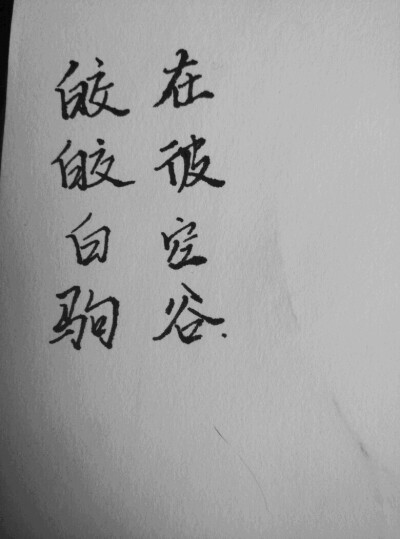 皎皎白驹
在彼空谷.